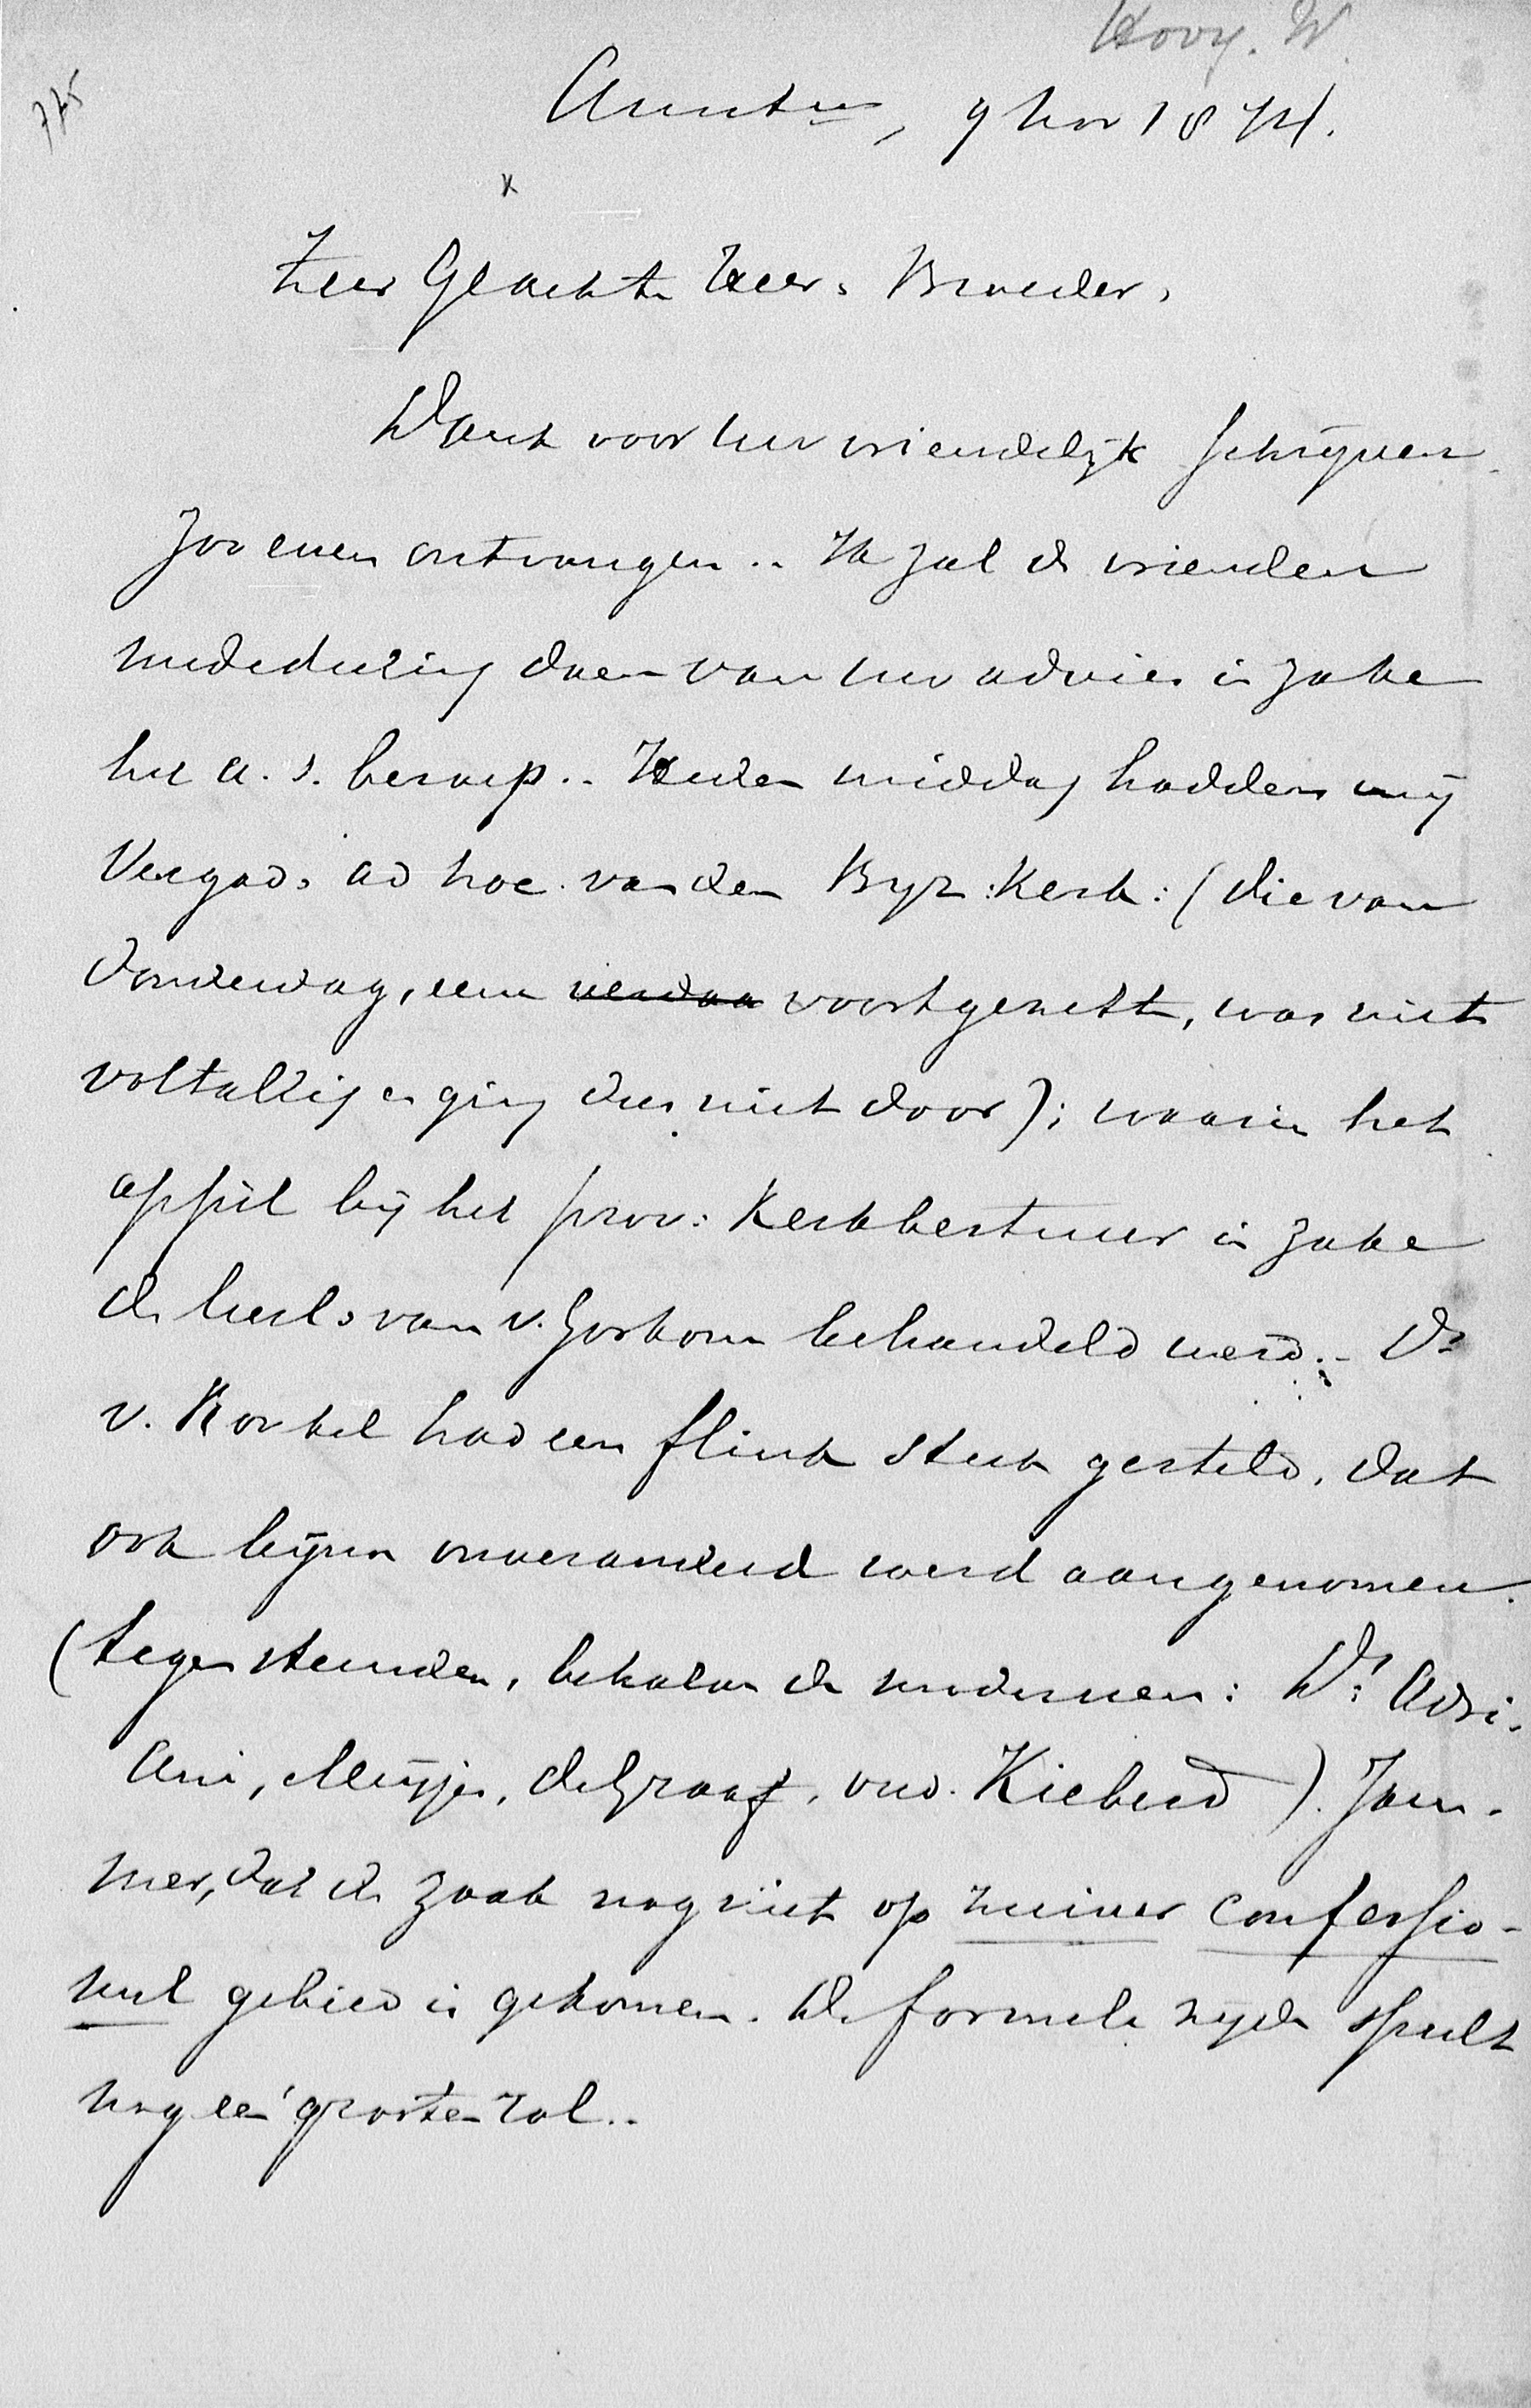 Hooy. W.
775
Amstm, 9 Nov 1874.
x
Zeer Geachte Heer & Broeder,
Dank voor uw vriendelijk schrijven
zoo even ontvangen.. Ik zal de vrienden
mededeeling doen van uw advies in zake
het a. s. beroep.. Heden middag hadden wij
Vergad. ad hoc van den Byz: Kerk: (die van
Donderdag, eene verdaa voortgezette, was niet
voltallig en ging dus niet door); waarin het
appèl bij het prov: Kerkbestuur in zake
de van v. Gorkom behandeld werd.- Ds
v. Ronkel had een flink stuk gesteld, dat
ook bijna onveranderd werd aangenomen.
(tegen stemden, behalve de modernen: Ds Adri-
ani, Meijjes, de Graaf, oud. Kiebert). Jam-
mer, dat de zaak nog niet op zuiver confessio-
neel gebied is gekomen. De formele zijde speelt
nog een groote rol..